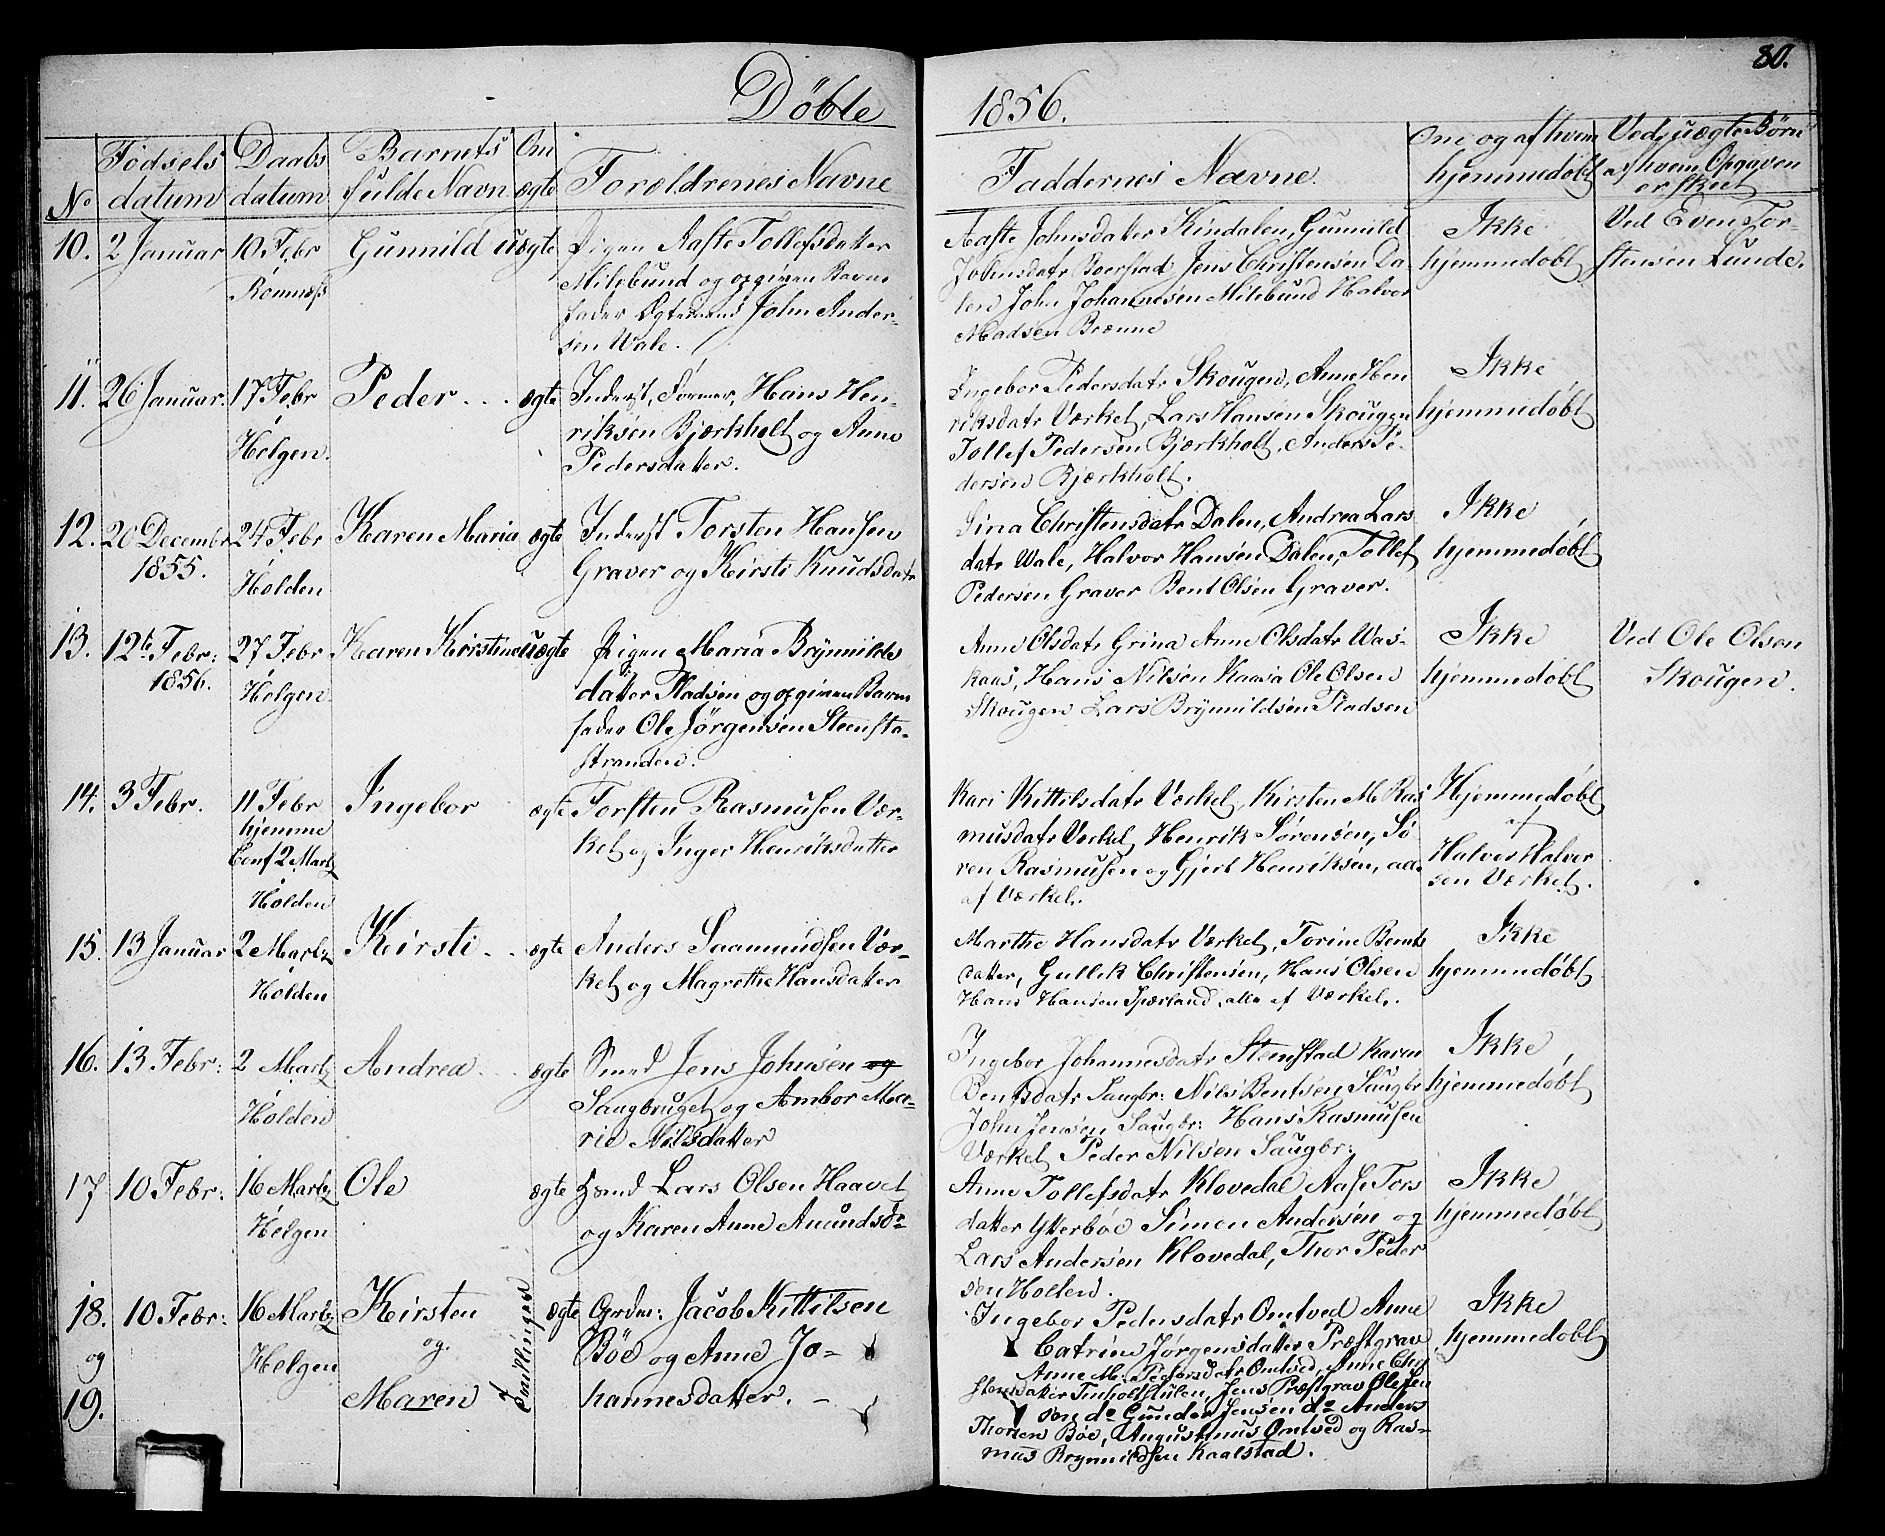 80.
Døbte 1856.
No
Fødsels datum
Daabs datum
Barnets fulde Navn
Om ægte
Forældrenes Navne
Faddernes Navne.
Om og af hvem hjemmedøbt
Ved uægte Børn af hvem Opgaven er skeet
10. 2 Januar 10 Febr Gunnild uægte
Romnæs
Pigen Aaste Tollefsdatter
Milebund og opgiven Barne
fader Ægtemand John Ander-
sen Wale.
Aaste Johnsdatter Kindalen, Gunnild
Johnsdatr Boerstad Jens Christensen Da
len John Johannesen Milebund Halvor
Madsen Brenne
Ikke
hjemmedøbt
Ved Even Tor-
stensen Lunde.
11. 26 Januar. 17 Febr Peder ægte
Helgen.
Inderst, Former, Hans Hen-
riksen Bjærkholt og Anne
Pedersdatter.
Ingebor Pedersdatr Skougen, Anne Hen
riksdatr Værket, Lars Hansen Skougen
Tollef Pedersen Bjærkholt, Anders Pe-
dersen Bjærkholt.
Ikke
hjemmedøbt
12. 20 Decembr 24 Febr Karen Maria ægte
1855. Holden
Inderst Torsten Hansen
Graver og Kirsti Knudsdatr
Sina Christensdatr Dalen, Andrea Lars
datr Wale, Halvor Hansen Dalen, Tollef
Pedersen Graver Bent Olsen Graver.
Ikke
hjemmedøbt
13. 12te Febr: 27 Febr Karen Kirstine uægte
1856. Helgen.
Pigen Maria Brynnilds
datter Pladsen og opgiven Barne
fader Ole Jørgensen Steensta-
stranden.
Anne Olsdatr Grina Anne Olsdatr Was-
kaas, Hans Nilsen Kaasa Ole Olsen
Skougen Lars Brynnildsen Pladsen
Ikke
hjemmedøbt
Ved Ole Olsen
Skougen.
14. 3 Febr. 11 Febr Ingebor ægte
hjemme
Conf 2 Marts
Holden
Torsten Rasmusen Vær-
ket og Inger Henriksdatter
Kari Kittilsdatr Værket, Kirsten M. Ras
musdatr Værket, Henrik Sørensen, Sø
ren Rasmusen og Gjert Henriksen, alle
af Værket.
Hjemmedøbt
af
Halvor Halvor
sen Værket.
15. 13 Januar 2 Marts Kirsti ægte
Holden
Anders Saamundsen Vær-
ket og Magrethe Hansdatter
Marthe Hansdatr Værket, Torine Bents
datter, Gullik Christensen, Hans Olsen
Hans Hansen Spærland, alle af Værket.
Ikke
hjemmedøbt
16. 13 Febr: 2 Marts Andrea ægte
Holden
Smed Jens Johnsen og
Saugbruget og Ambor Ma-
rie Nilsdatter
Ingebor Johannesdatr Stenstad Karen
Bentsdatr Saugbr: Nils Bentsen Saugbr
John Jensen Saugbr: Hans Rasmusen
Værket Peder Nilsen Saugbr:
Ikke
hjemmedøbt
17 10 Febr: 16 Marts Ole ægte
Helgen
Lars Olsen Haavet
og Karen Anne Amundsdr
Anne Tollefsdatr Klovedal Aase Tors
datter Ytterbøe Simon Andersen og
Lars Andersen Klovedal, Thor Peder
sen Holten.
Ikke
hjemmedøbt
18. 10 Febr: 16 Marts Kirsten ægte
og Helgen og
19. Maren
Tvillinger
Gvrdm: Jacob Kittilsen
Bøe og Anne Jo-
hannesdatter.
Ingebor Pedersdatr Omtved Anne
Catrine Jørgensdatter Præstgrav
Anne M. Pedersdatr Omtved, Anne Chri
stensdatter Jens Præstgrav Ole Jen
sen do Gunder Jensen do Anders
Thorsen Bøe, Augustinus Omtved og Ras-
mus Brynnildsen Kaalstad.
Ikke
hjemmedøbt